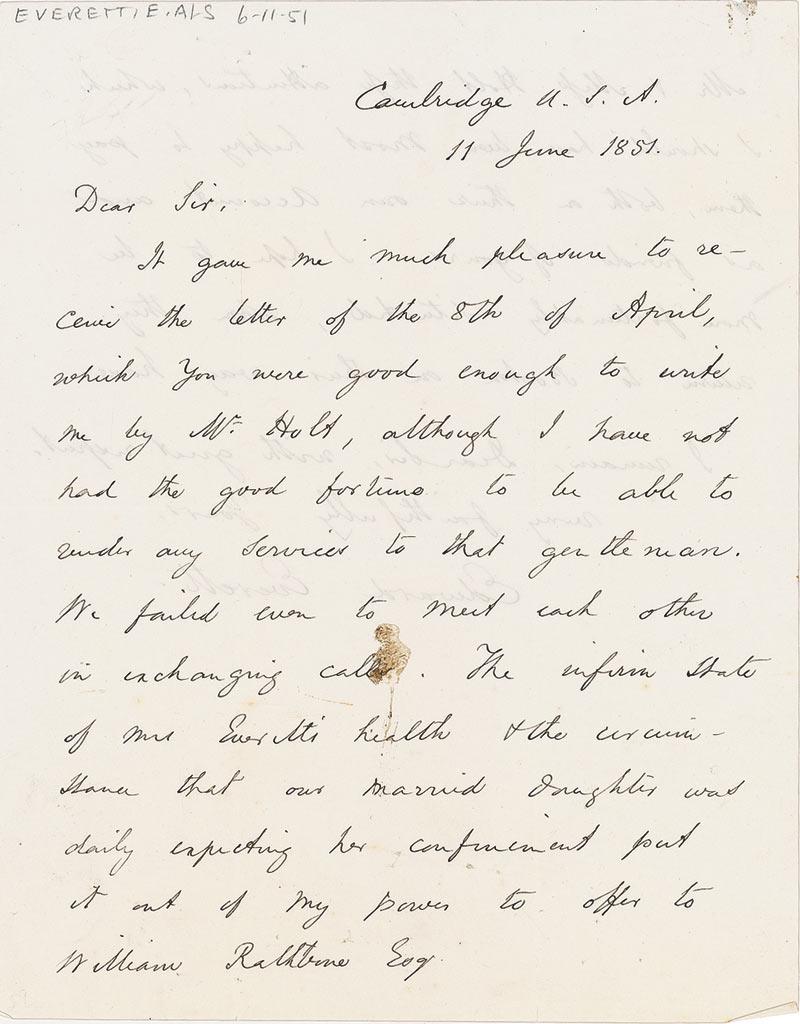 EVERETT, E. ALS 6-11-51
Cambridge U. S. A.
11 June 1851.
Dear Sir,
It gave me much pleasure to re-
ceive the letter of the 8th of April,
which you were good enough to write
me by Mr. Holt, although I have not
had the good fortune to be able to
render any services to that gentleman.
We failed even to meet each other
in exchanging calls. The infirm state
of Mrs Everett's health & the circum-
stance that our married daughter was
daily expecting her confinement put
it out of my power to offer to
William Rathbone Esq.